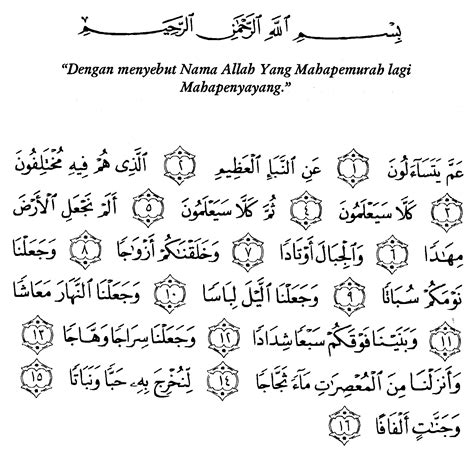 بِسْمِ اللَّهِ الرَّحْمَٰنِ الرَّحِيمِ
“Dengan menyebut Nama Allah Yang Mahapemurah lagi
Mahapenyayang.”
عَمَّ يَتَسَاءَلُونَ ١ عَنِ النَّبَإِ الْعَظِيمِ ٢ الَّذِي هُمْ فِيهِ مُخْتَلِفُونَ
٣ كَلَّا سَيَعْلَمُونَ ٤ ثُمَّ كَلَّا سَيَعْلَمُونَ ٥ أَلَمْ نَجْعَلِ الْأَرْضَ
مِهَٰدًا ٦ وَالْجِبَالَ أَوْتَادًا ٧ وَخَلَقْنَاكُمْ أَزْوَاجًا ٨ وَجَعَلْنَا
نَوْمَكُمْ سُبَاتًا ٩ وَجَعَلْنَا الَّيْلَ لِبَاسًا ١٠ وَجَعَلْنَا النَّهَارَ مَعَاشًا
١١ وَبَنَيْنَا فَوْقَكُمْ سَبْعًا شِدَادًا ١٢ وَجَعَلْنَا سِرَاجًا وَهَّاجًا ١٣
وَأَنزَلْنَا مِنَ الْمُعْصِرَاتِ مَاءً ثَجَّاجًا ١٤ لِّنُخْرِجَ بِهِ حَبًّا وَنَبَاتًا ١٥
وَجَنَّاتٍ أَلْفَافًا ١٦